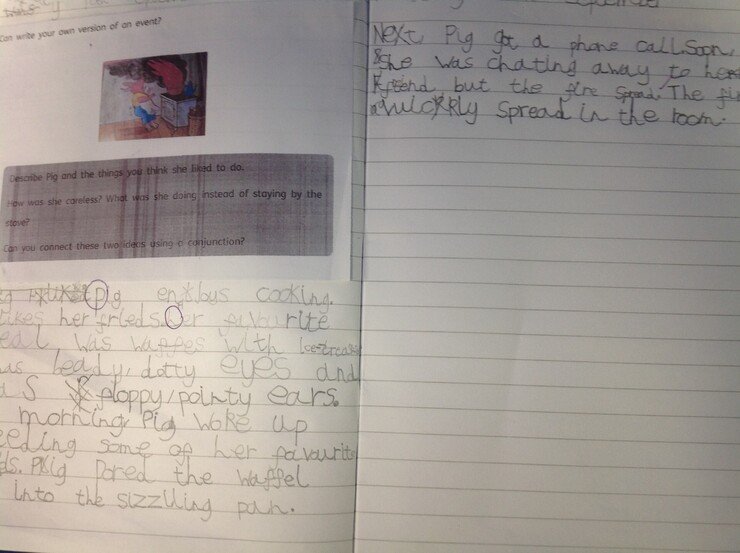 Can write your own version of an event?
Describe Pig and the things you think she liked to do.
How was she careless? What was she doing instead of staying by the
stove?
Can you connect these two ideas using a conjunction?
Pig enjoys cooking.
likes her frieds. Her favourite
eal was waffees with
as beady, dotty eyes and
S floppy/pointy ears.
morning, Pig woke up
eeding some of her favourite
ds. Pig Pored the waffel
into the sizzling pan.
Next, Pig got a phone call. Soon,
She was chating away to her
friend, but the fire spread. The fir
quickly spread in the room.